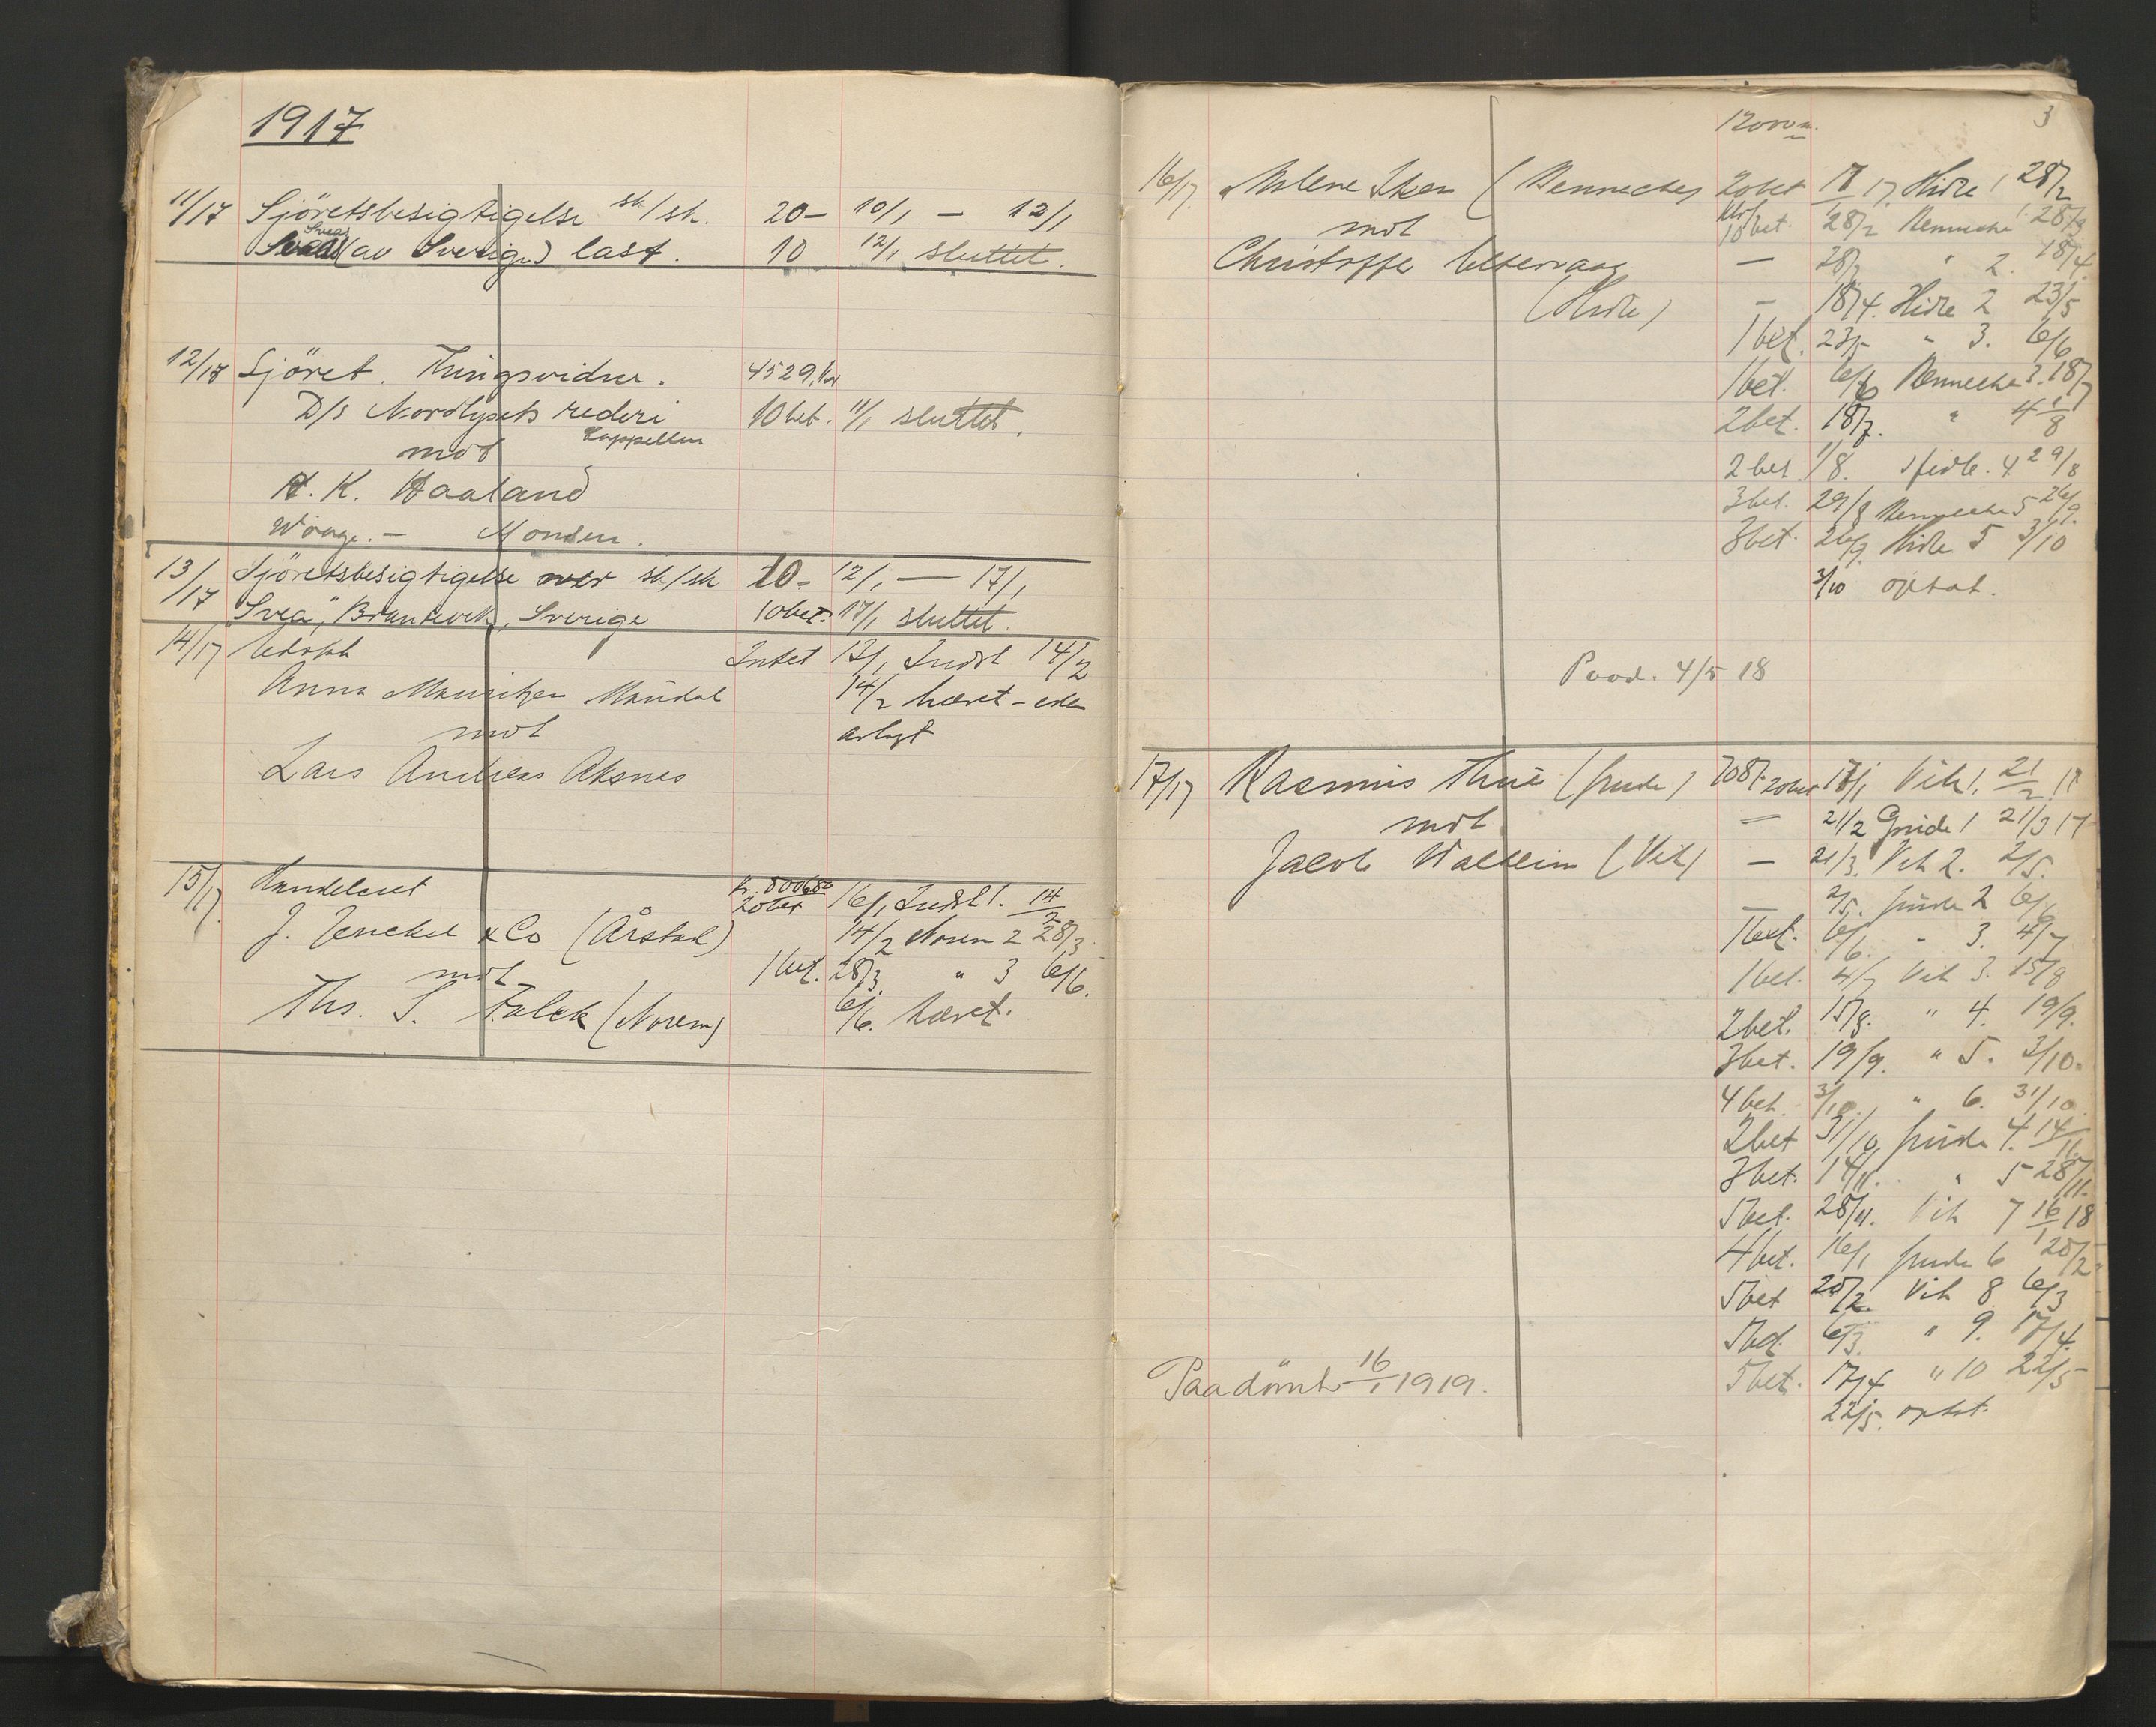 1917
11/17 Sjöretsbesigtigelse sk/sk. 20- 10/1 - 12/1
Sveas
(av Sverige) last. 10 12/1 sluttet.
12/17 Sjöret. Thingsvidne. 4529,
D/s Nordlysets rederi 10 bet. 11/1 sluttet.
mot Kappellen
A. K. Haaland
Monsen.
13/17 Sjöretsbesigtigelse over sk/sk 10- 12/1 - 17/1
"Svea", Sverige 10 bet. 17/1 sluttet.
14/17 Intet 17/1 Indst 14/2
Anna Mandal 14/2 hævet - eden
mot avlagt
Lars Andreas Aksnes
15/17 Handelsret 20 bet 16/1 Indst 1. 14/2
J. & Co (Årstad) 14/2 Norem 2 28/3.
mot 1 bet. 28/3. " 3 6/6.
Ths. S. Falck (Norem) 6/6. hævet.
3
16/17 20 bet 17 Hidle 1 28/2
mot 10 bet. 28/2 1. 28/3
Christoffer - 28/3 " 2. 18/4.
(Hidle) - 18/4. Hidle 2 23/5
1 bet. 23/5 " 3. 6/6
1 bet. 6/6 3. 18/7
2 bet. 18/7. " 4 1/8
2 bet. 1/8. Hidle. 4. 29/8
3 bet. 29/8 5 26/9.
3 bet. 26/9 Hidle 5 3/10
3/10 optat.
Paad. 4/5 18
17/17 Rasmus Thue (Grude) 708,- 20 bet 17/1 Vik 1. 21/2 17
mot - 21/2 Grude 1 21/3 17
Jacob (Vik) - 21/3. Vik 2. 2/5.
- 2/5. Grude 2 6/6
1 bet. 6/6. " 3. 4/7
1 bet. 4/7 Vik 3. 15/8
2 bet. 15/8. " 4. 19/9.
3 bet. 19/9. " 5. 3/10.
4 bet. 3/10. " 6. 31/10.
2 bet 31/10 Grude 4. 14/11.
3 bet. 14/11. " 5 28/11.
5 bet. 28/11. Vik 7 16/1 18
4 bet. 16/1 Grude 6 20/2
5 bet 20/2. Vik 8 6/3
5 bet. 6/3. " 9. 17/4.
Paadömt 16/1 1919. 5 bet. 17/4 " 10 22/5
22/5. optat.